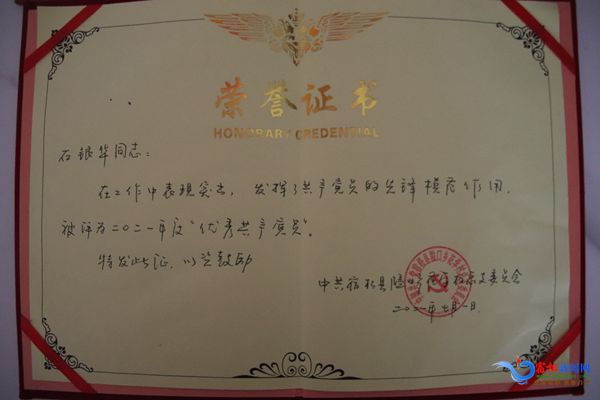 荣誉证书
HONORARY CREDENTIAL
石银华同志：
在工作中表现突出，发挥了共产党员的先锋模范作用，
被评为二〇二一年度“优秀共产党员”。
特发此证，以兹鼓励
中共宿松县隘口乡
总支委员会
二〇二一年七月一日